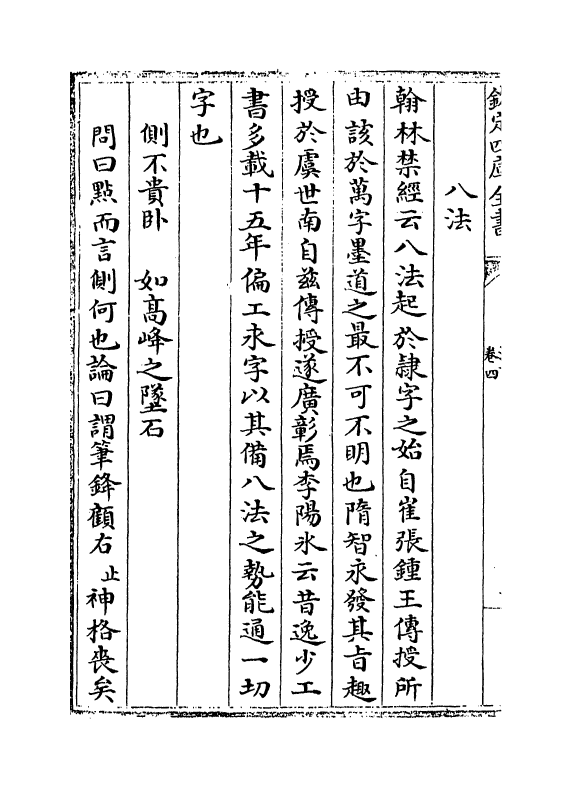 欽定四庫全書
卷四
八法
翰林禁經云八法起於隷字之始自崔張鍾王傳授所
由該於萬字墨道之最不可不明也隋智永發其㫖趣
授於虞世南自兹傳授遂廣彰焉李陽氷云昔逸少工
書多載十五年偏工永字以其備八法之勢能通一切
字也
側不貴卧　如髙峰之墜石
問曰點而言側何也論曰謂筆鋒顧右止神格喪矣